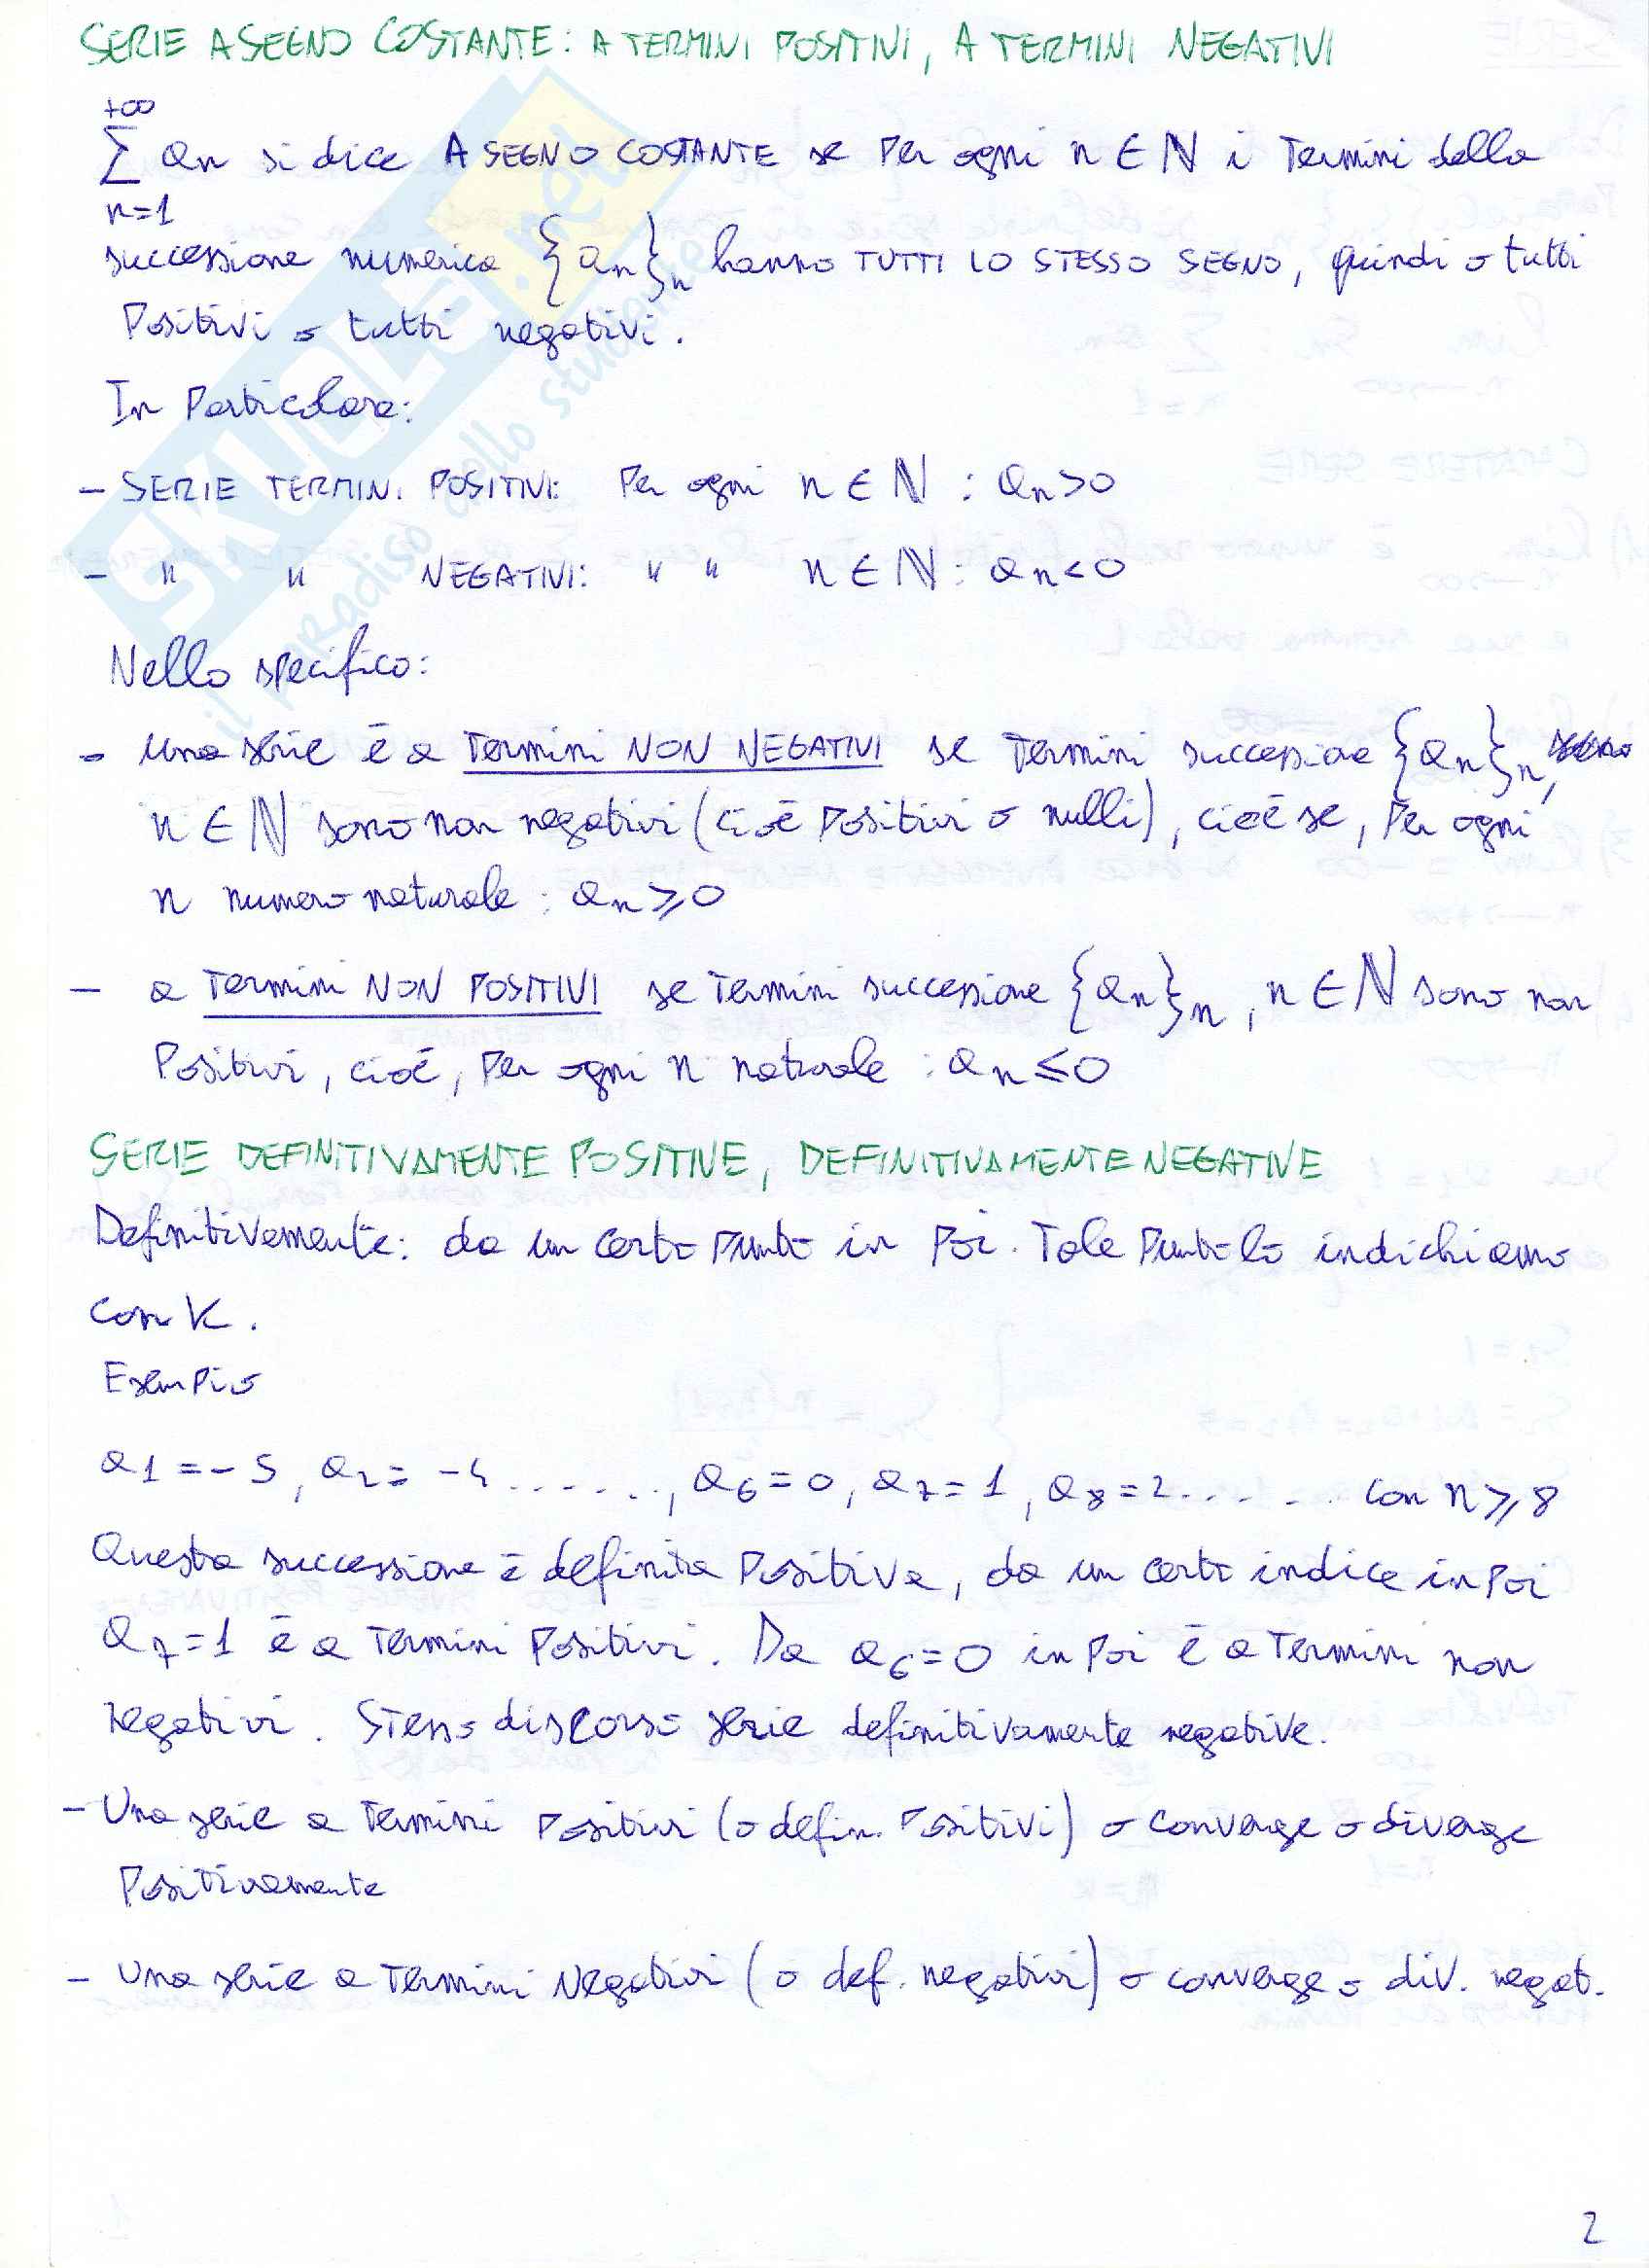 SERIE A SEGNO COSTANTE: A TERMINI POSITIVI, A TERMINI NEGATIVI
+∞
∑ an si dice A SEGNO COSTANTE se per ogni n ∈ ℕ i termini della
n=1
successione numerica {an}n hanno TUTTI LO STESSO SEGNO, quindi o tutti
positivi o tutti negativi.
In particolare:
- SERIE TERMINI POSITIVI: Per ogni n ∈ ℕ : an>0
- " " NEGATIVI: " " n ∈ ℕ : an<0
Nello specifico:
- Una serie è a termini NON NEGATIVI se termini successione {an}n,
n ∈ ℕ sono non negativi (cioè positivi o nulli), cioè se, per ogni
n numero naturale : an ≥ 0
- a termini NON POSITIVI se termini successione {an}n, n ∈ ℕ sono non
positivi, cioè, per ogni n naturale : an ≤ 0
SERIE DEFINITIVAMENTE POSITIVE, DEFINITIVAMENTE NEGATIVE
Definitivamente: da un certo punto in poi. Tale punto lo indichiamo
con K.
Esempio
a1=-5, a2=-4......., a6=0, a7=1, a8=2...... con n ≥ 8
Questa successione è definita positiva, da un certo indice in poi
a7=1 è a termini positivi. Da a6=0 in poi è a termini non
negativi. Stesso discorso serie definitivamente negative.
- Una serie a termini positivi (o defin. positivi) o converge o diverge
positivamente
- una serie a termini negativi (o def. negativi) o converge o div. negat.
2
SKUOLA.net
il paradiso dello studente